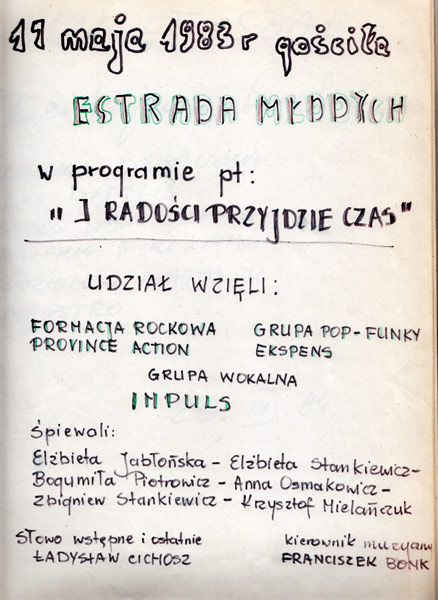 11 maja 1983 r gościła
ESTRADA MŁODYCH
w programie pt:
" I RADOŚCI PRZYJDZIE CZAS"
UDZIAŁ WZIĘLI:
FORMACJA ROCKOWA
PROVINCE ACTION
GRUPA POP-FUNKY
EKSPENS
GRUPA WOKALNA
IMPULS
Śpiewali:
Elżbieta Jabłońska - Elżbieta Stankiewicz-
Bogumiła Piotrowicz - Anna Osmakowicz-
Zbigniew Stankiewicz - Krzysztof Mielańczuk
Słowo wstępne i ostatnie
ŁADYSŁAW CICHOSZ
kierownik muzyczny
FRANCISZEK BONK